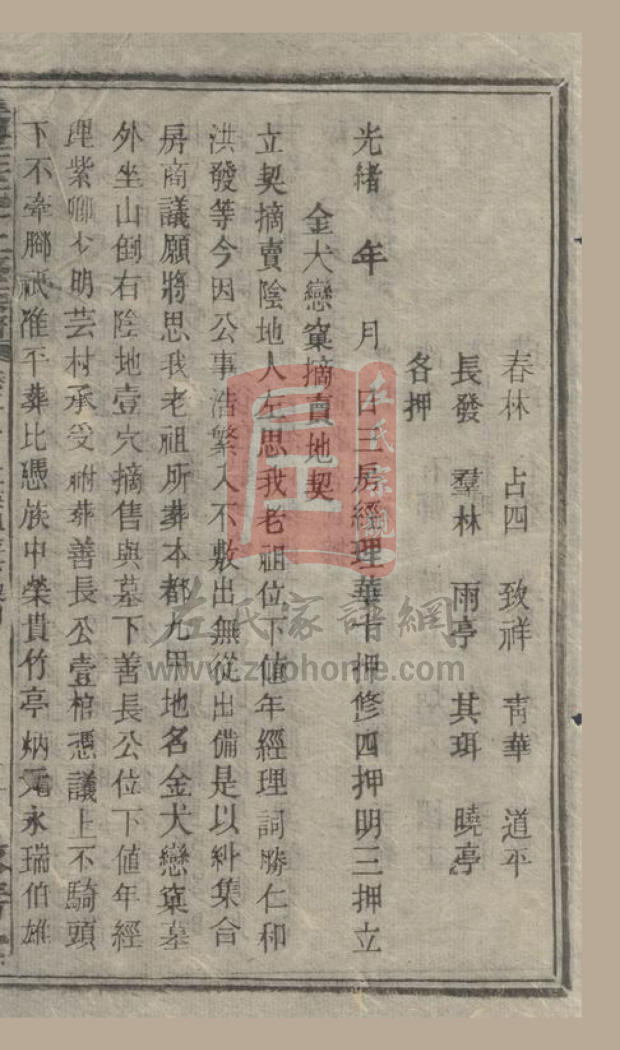 春林 占四 致祥 靑華 道平
長發 羣林 雨亭 其珥 曉亭
各押
光緒 年 月 日三房經理華卡押修四押明三押立
金犬戀窠摘賣地契
立契摘賣陰地人左思我老祖位下値年經理詞勝仁和
洪發等今因公事浩繁入不敷出無從出備是以糾集合
房商議願將思我老祖所葬本都九甲地名金犬戀窠墓
外坐山倒右陰地壹穴摘售與墓下善長公位下値年經
理紫卿 明芸村承受祔葬善長公壹棺憑議上不騎頭
下不牽腳祇准平葬比憑族中榮貴竹亭炳 永瑞伯雄
左氏宗親
左氏家譜網
www.zuohome.com